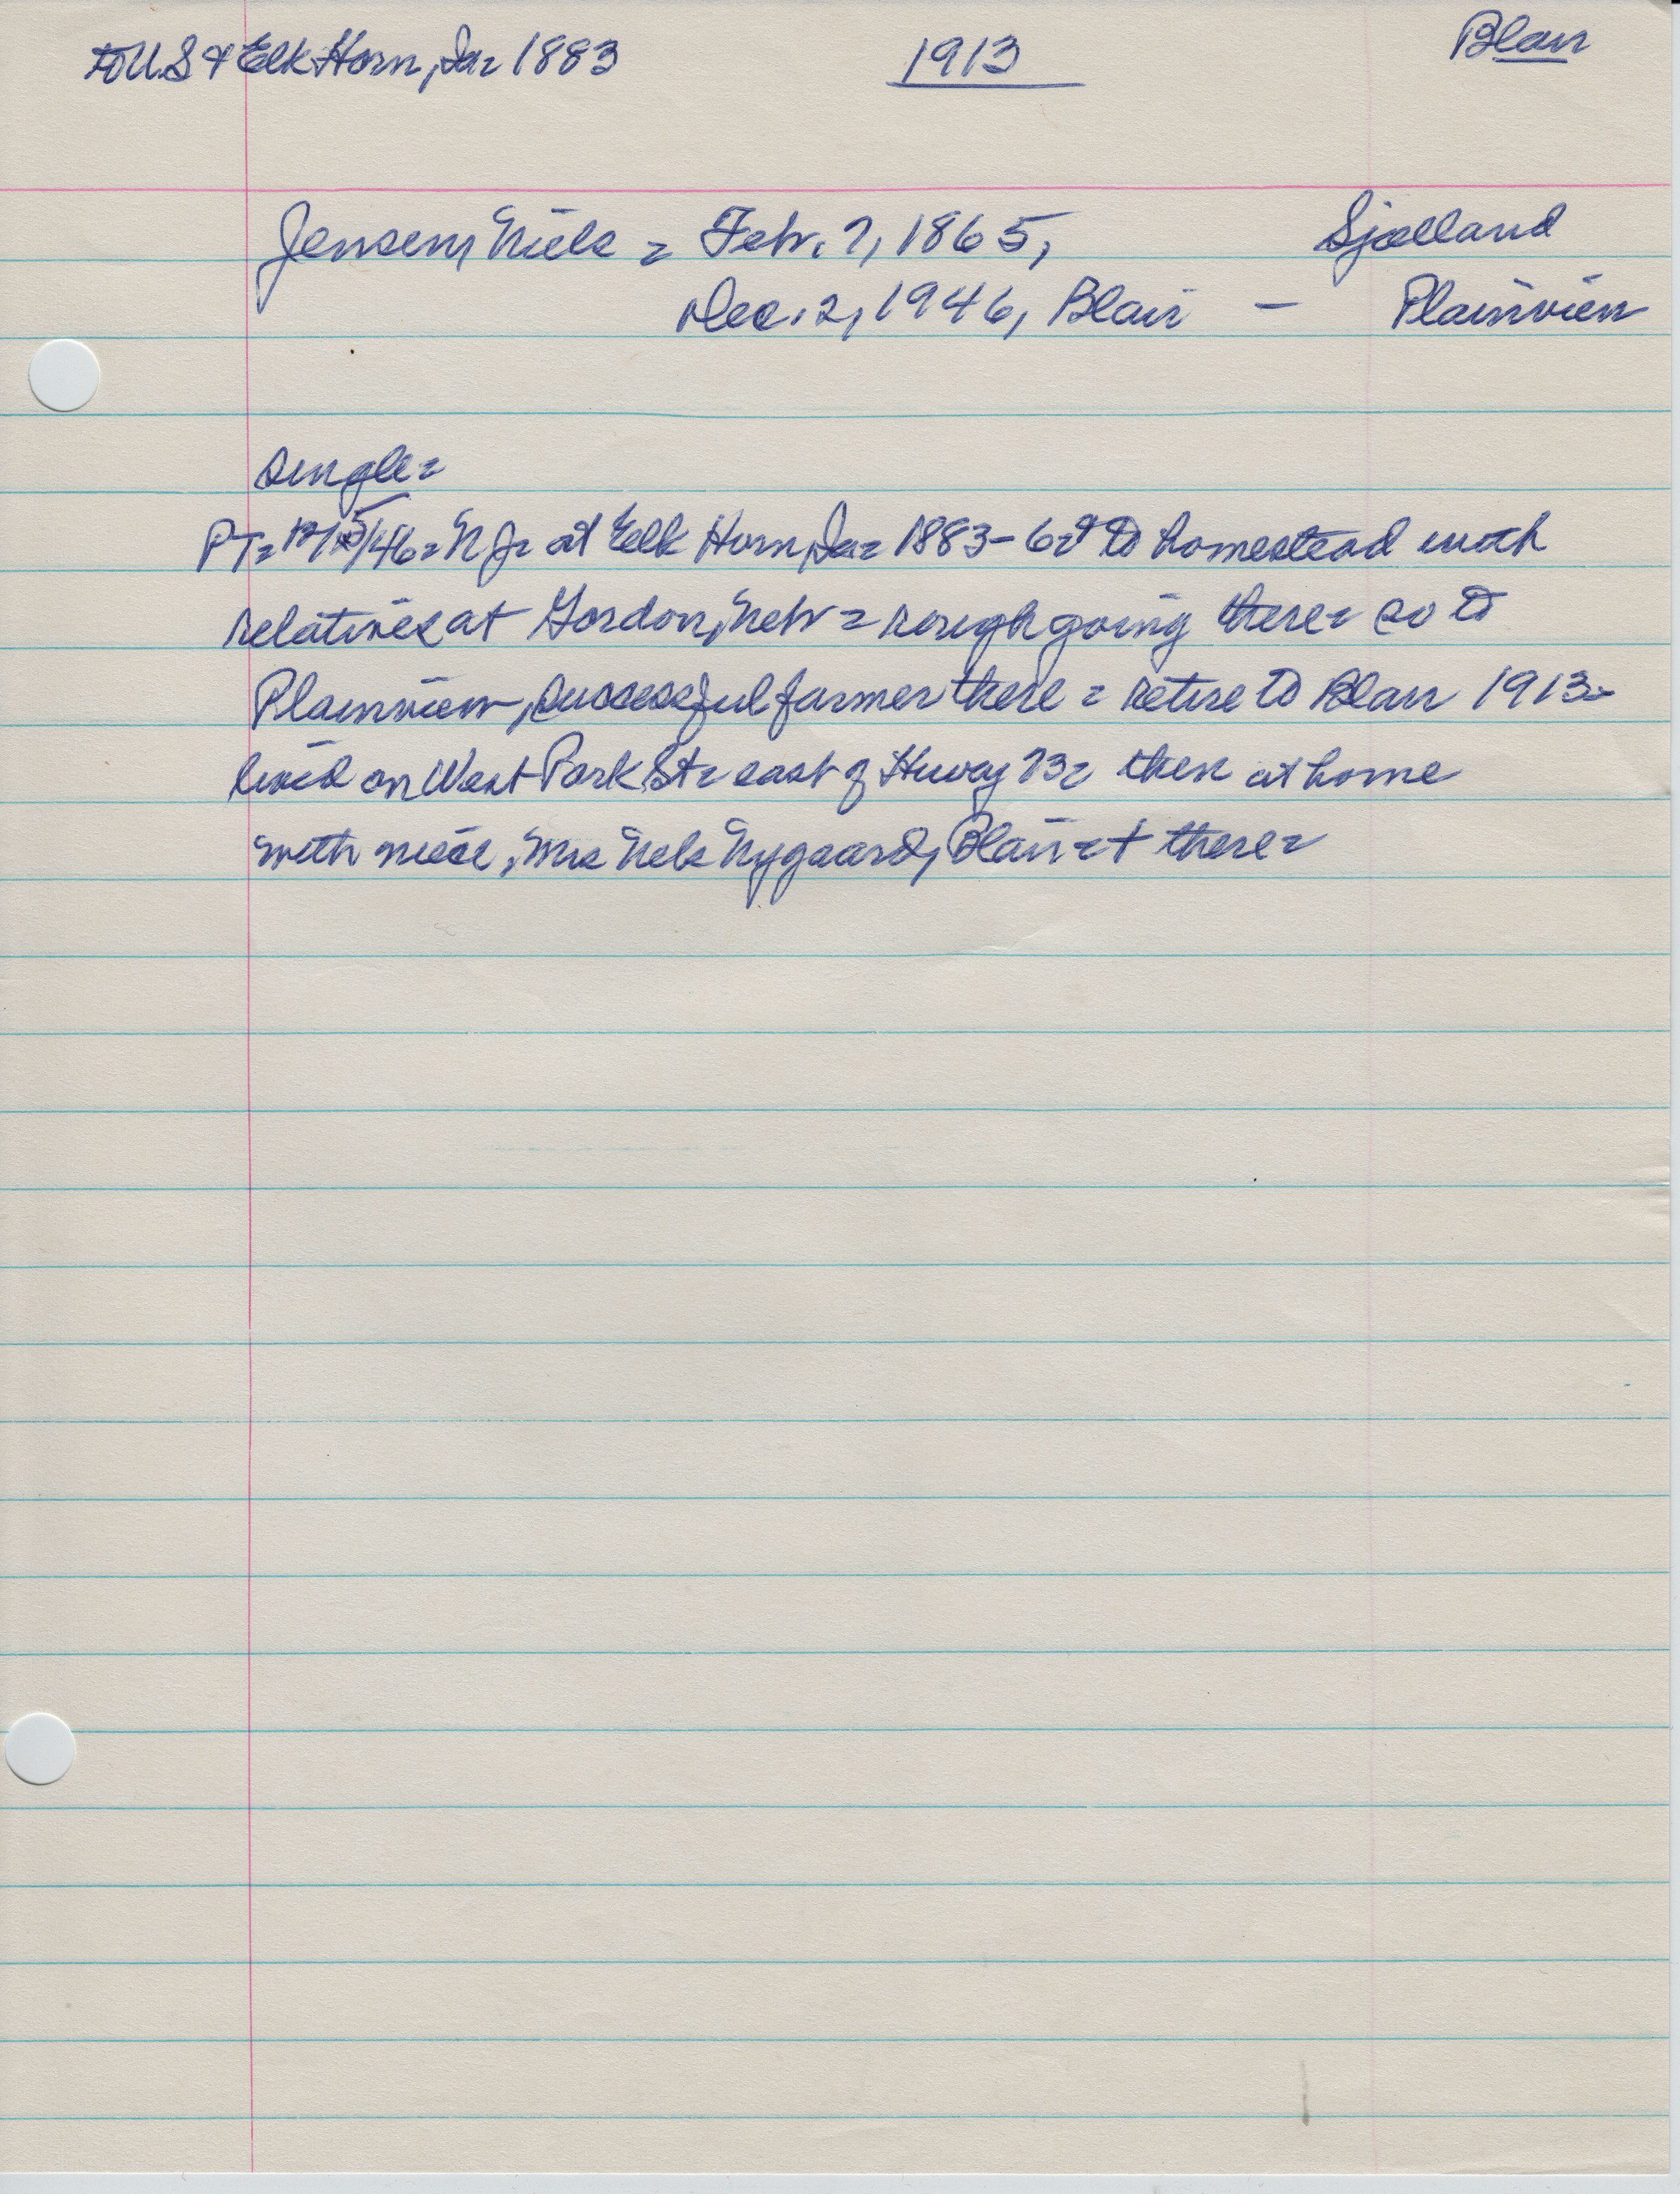 to U.S & Elk Horn, Ia = 1883 1913 Blair
Jensen, Niels = Feb. 7, 1865, Sjælland
Dec. 2, 1946, Blair - Plainview
single =
PT = 12/15/46 = N J = at Elk Horn, Ia = 1883-6 = to homestead with
relatives at Gordon, Neb = rough going there = so to
Plainview, successful farmer there = retire to Blair 1913 =
lived on West Park St = east of Hiway 73 = then at home
with niece, Mrs Nels Nygaard, Blair = + there =